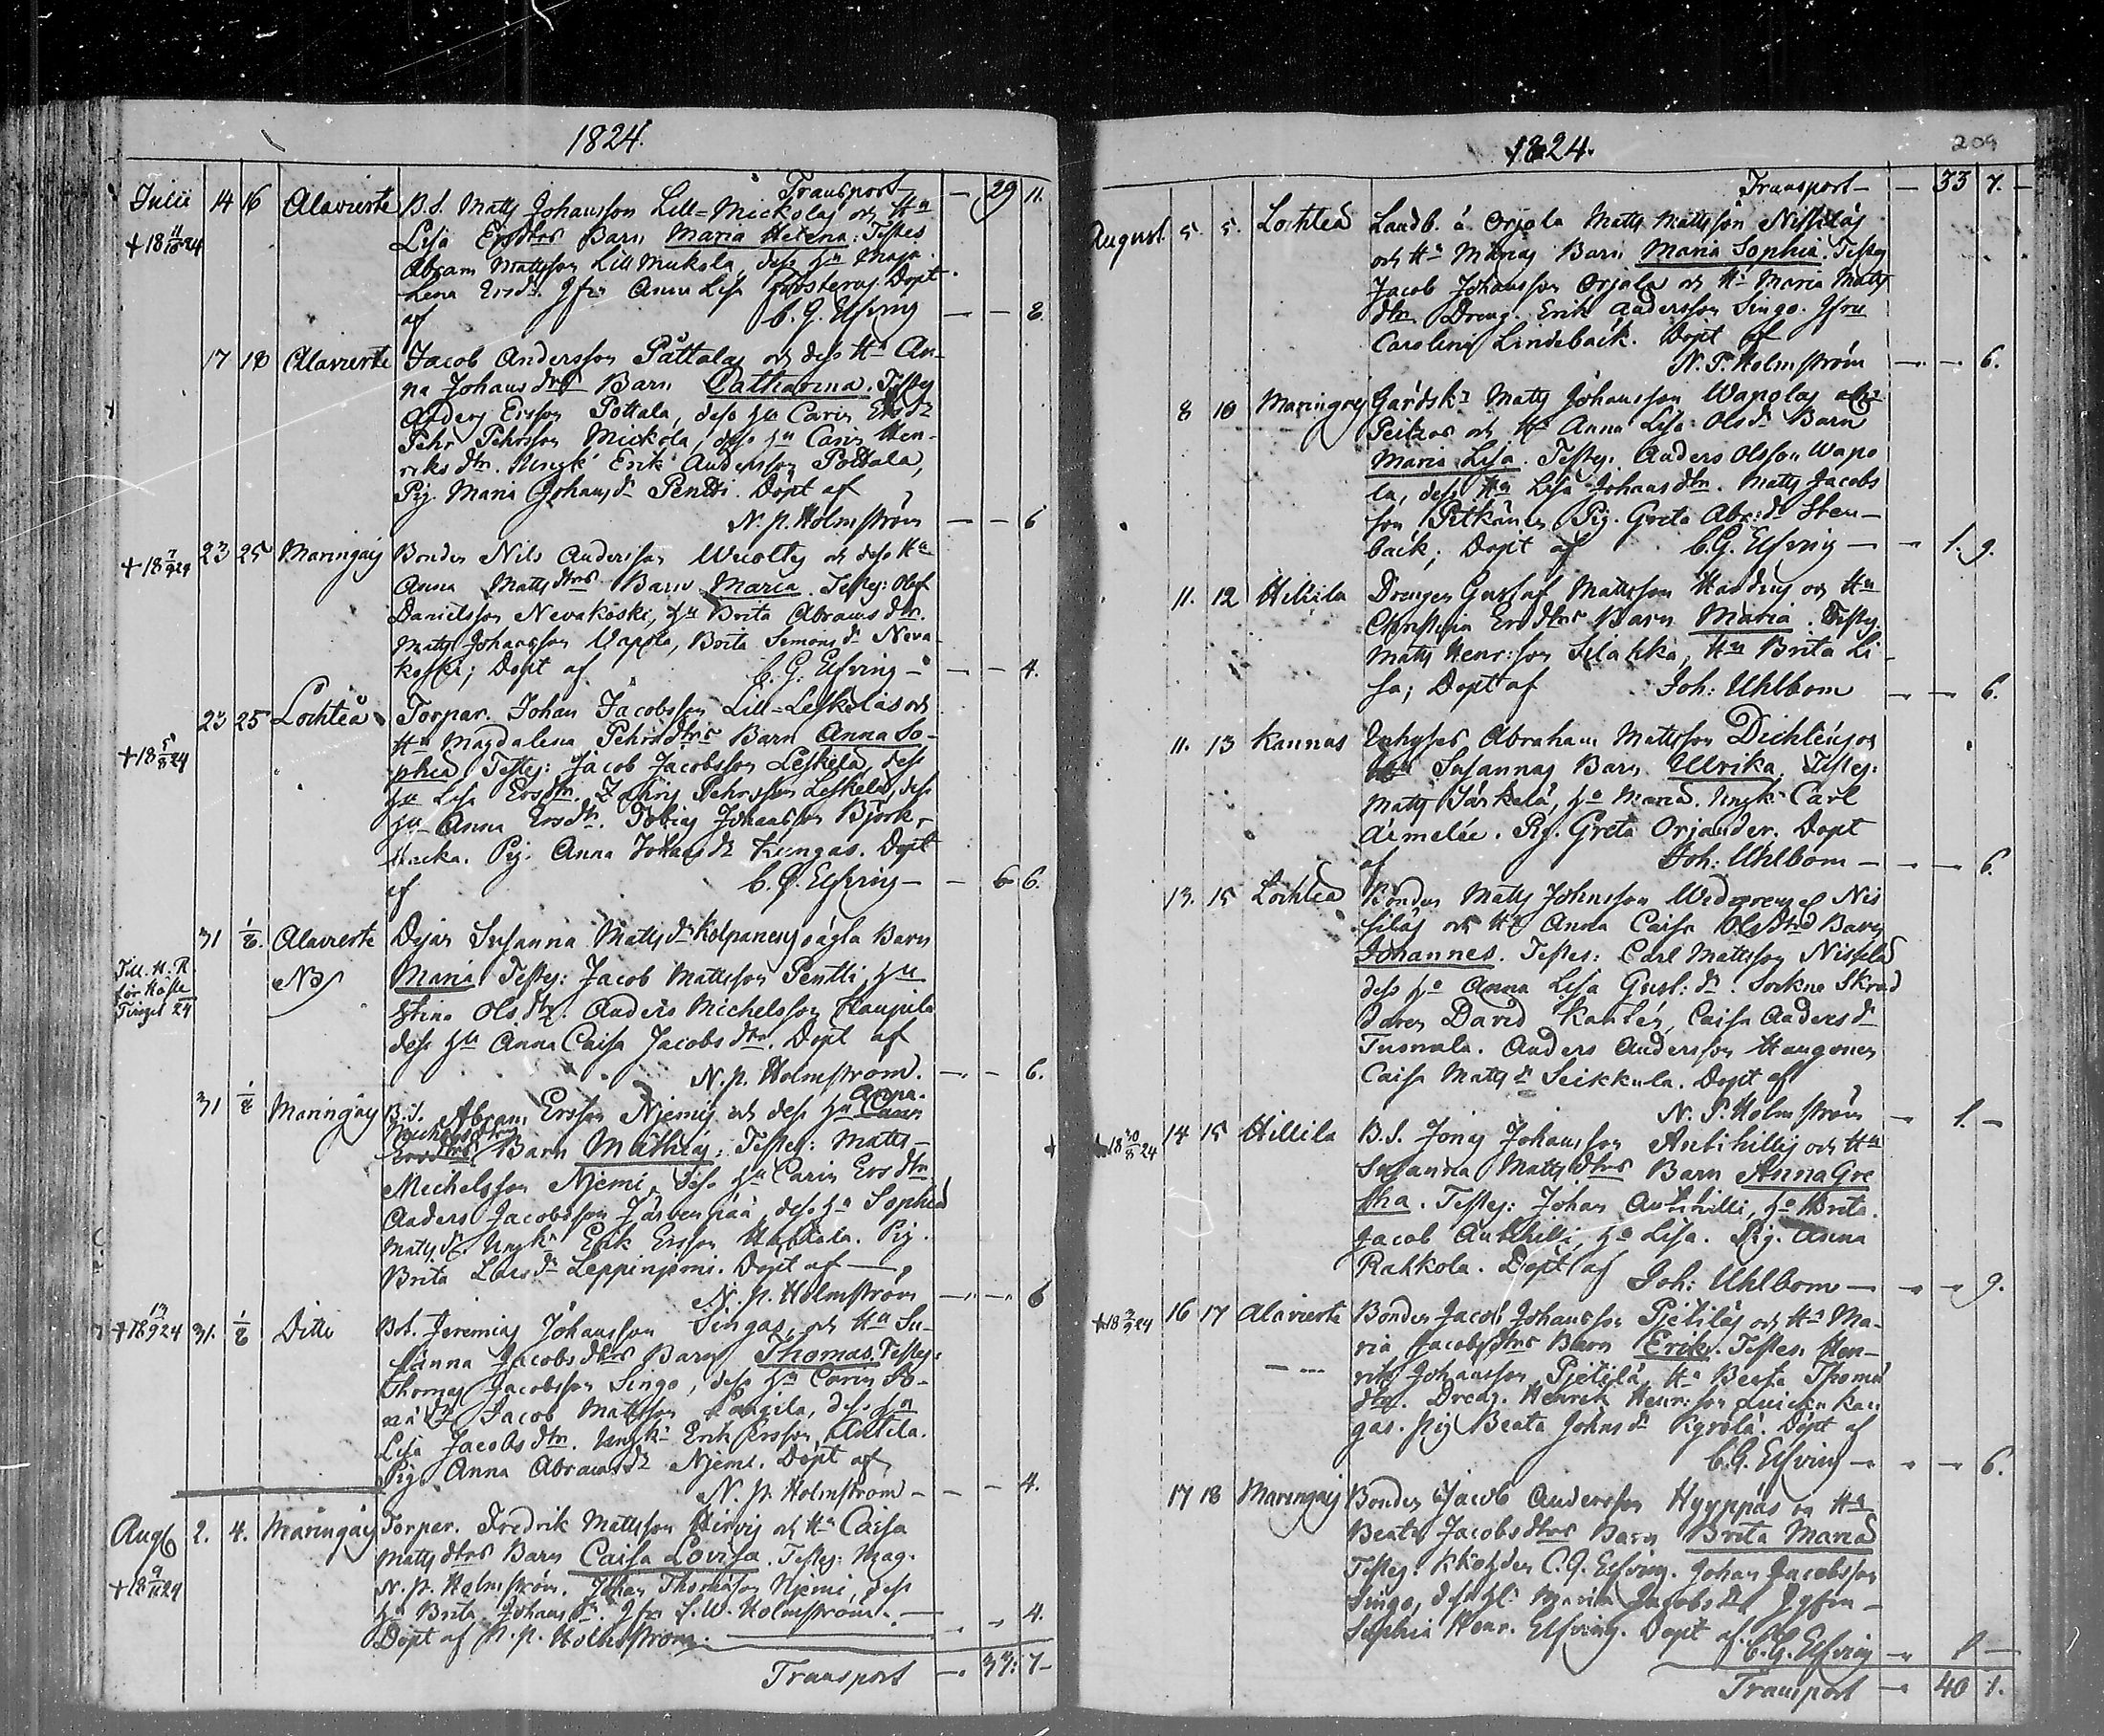 1824.
Transport — 29 11.
Julii 14 16 Alavierte B.S. Matts Johansson Lill=Mickolas och Hu
+ 18 11/10 24 Lisa Ersdtrs Barn Maria Helena. Testes
Abram Mattsson Lill Mickola, dess hu Maja
Lena Ersdr. Jfru Anna Lisa Dopt
af C. G. Elfving — — 8.
17 18 Alavierte Jacob Andersson Påttalas och dess Hu An-
na Johansdtrs Barn Catharina. Testes
Anders Ersson Pottala, dess hu Carin Ersdr
Pehr Pehrsson Mickola, dess hu Carin Hen-
riksdtr. Ungk. Erik Andersson Pottala,
Pig. Maria Johansdr Pentti. Döpt af
N. P. Holmström — — 6
+ 18 7/9 24 23 25 Maringais Bonden Nils Andersson Wuoltis och dess Hu
Anna Mattsdtrs Barn Maria. Testes: Olof
Danielsson Nevakoski, hu Brita Abramsdtr.
Matts Johansson Vapola, Brita Simonsdr Neva-
koski; Dopt af C. G. Elfving — — — 4.
23 25 Lochteå Torpar. Johan Jacobsson Lill=Leskelas och
+ 18 5/8 24 Hu Magdalena Pehrsdtrs Barn Anna So-
phia. Testes: Jacob Jacobsson Leskelä, dess
hu Lisa Ersdtr. Zachris Pehrsson Leskelä, dess
hu Anna Ersdtr. Tobias Johansson Björk-
backa. Pig. Anna Johansdr Kungas. Dopt
af C. G. Elfving — — 6 6.
31 1/8. Alavierte Dejan Susanna Mattsdr Kolpanens oägta Barn
Till. H. R. för Höste Tinget 24
Nb Maria. Testes: Jacob Mattsson Pentti, hu
Stina Olsdtr. Anders Michelsson Haupila
dess hu Anna Caisa Jacobsdtr. Dopt af
N. P. Holmström. — — 6.
31 1/8 Maringais B.S. Abram Ersson Njemis och dess hu Anna
Michelsdtrs Barn Mathias. Testes: Matts
Michelsson Njemi, dess hu Carin Ersdtr
Anders Jacobsson Järvenpää, dess hu Sophia
Mattsdr. Ungkn Erik Ersson Hakkala. Pig.
Brita Larsdr Leppinjemi. Dopt af —
N. P. Holmström — — 6
+ 18 13/9 24 31. 1/8 Ditto Bd. Jeremias Johansson Singas, och Hu Su-
sanna Jacobsdtrs Barn Thomas. Testes:
Thomas Jacobsson Singo, dess hu Carin
Jacob Mattsson dess hu
Lisa Jacobsdtr. Ungkn Erik Ersson Anttila.
Pig. Anna Abramsdr Njemi. Döpt af
N. P. Holmström — — — 4.
Aug 2. 4. Maringais Torpar. Fredrik Mattsson Hirvis och Hu Caisa
Mattsdtrs Barn Caisa Lovisa. Testes: Mag.
+ 18 9/11 24 N. P. Holmström. Johan Thomasson Njemi, dess
hu Brita Johansdr. Jfru S. W. Holmström. — 4.
Döpt af N. P. Holmström.
Transport — 33: 7-
1824. 209
Transport — — 33 7. —
August 5. 5. Lochteå Landb. å Orjola Matts Mattsson Nissilas
och Hu Marias Barn Maria Sophia. Testes
Jacob Johansson Orjala och Hu Maria Matts
dtr. Dreng. Erik Andersson Singo. Jfru
Carolina Lindebäck. Döpt af
N. P. Holmström — — 6.
8 10 Maringais Gårdskr Matts Johansson Wapolas
Peitsos och Hu Anna Lisa Olsdr Barn
Maria Lisa. Testes. Anders Olsson Wapo
la, dess Hu Lisa Johansdtr. Matts Jacobs
son Pitkänen Pig. Greta Abr:dr Sten-
bäck; Döpt af C. G. Elfving — — 1. 9.
11. 12 Hihnila Drengen Gustaf Mattsson Haddings och Hu
Christina Ersdtrs Barn Maria. Testes.
Matts Henr:son Silahka, Hu Brita Li-
sa; Dopt af Joh: Uhlbom — — 6.
11. 13 Kannas Inhyses Abraham Mattsson Dichlings och
Hu Susannas Barn Ulrika. Testes:
Matts Särkelä, hu Maria. Ungk. Carl
Aimelée. Pig. Greta Orjander. Dopt
af Joh: Uhlbom — — — 6.
13. 15 Lochteå Bonden Matts Johansson Nis
silas och Hu Anna Caisa Olsdtrs Barn
Johannes. Testes: Carl Mattsson Nissilä
dess hu Anna Lisa Gust:dr. Sockne Skräd
daren David Kantén, Caisa Andersdr
Tusnala. Anders Andersson Haugonen
Caisa Mattsdr Seikkula. Dopt af
N. P. Holmström — 1. —
+ 18 20/8 24 14 15 Hillila B.S. Jonas Johansson Antihillis och Hu
Susanna Mattsdtrs Barn Anna Gre
tha. Testes: Johan Anthilli, hu Brita.
Jacob Anthilli, hu Lisa. Pig. Anna
Rahkola. Döpt af Joh: Uhlbom — — — 9.
+ 18 3/9 24 16 17 Alavierte Bonden Jacob Johansson Pjetiläs och Hu Ma-
ria Jacobsdtrs Barn Erik. Testes. Hen-
rik Johansson Pjetilä, Hu Beata Thoms
dtr. Dreng. Henrik Henr:son kan
gas. Pig Beata Johnsdr Kyrölä. Döpt af
C. G. Elfving — — — 6.
17 18 Maringais Bonden Jacob Andersson Hyyppäs och Hu
Beata Jacobsdtrs Barn Brita Maria
Testes: C. G. Elfving. Johan Jacobsson
Singo, dess hu Maria Jacobsdtr Jgfru
Sophia Henr. Elfving. Dopt af C. G. Elfving — 1 —
Transport — 40 1.